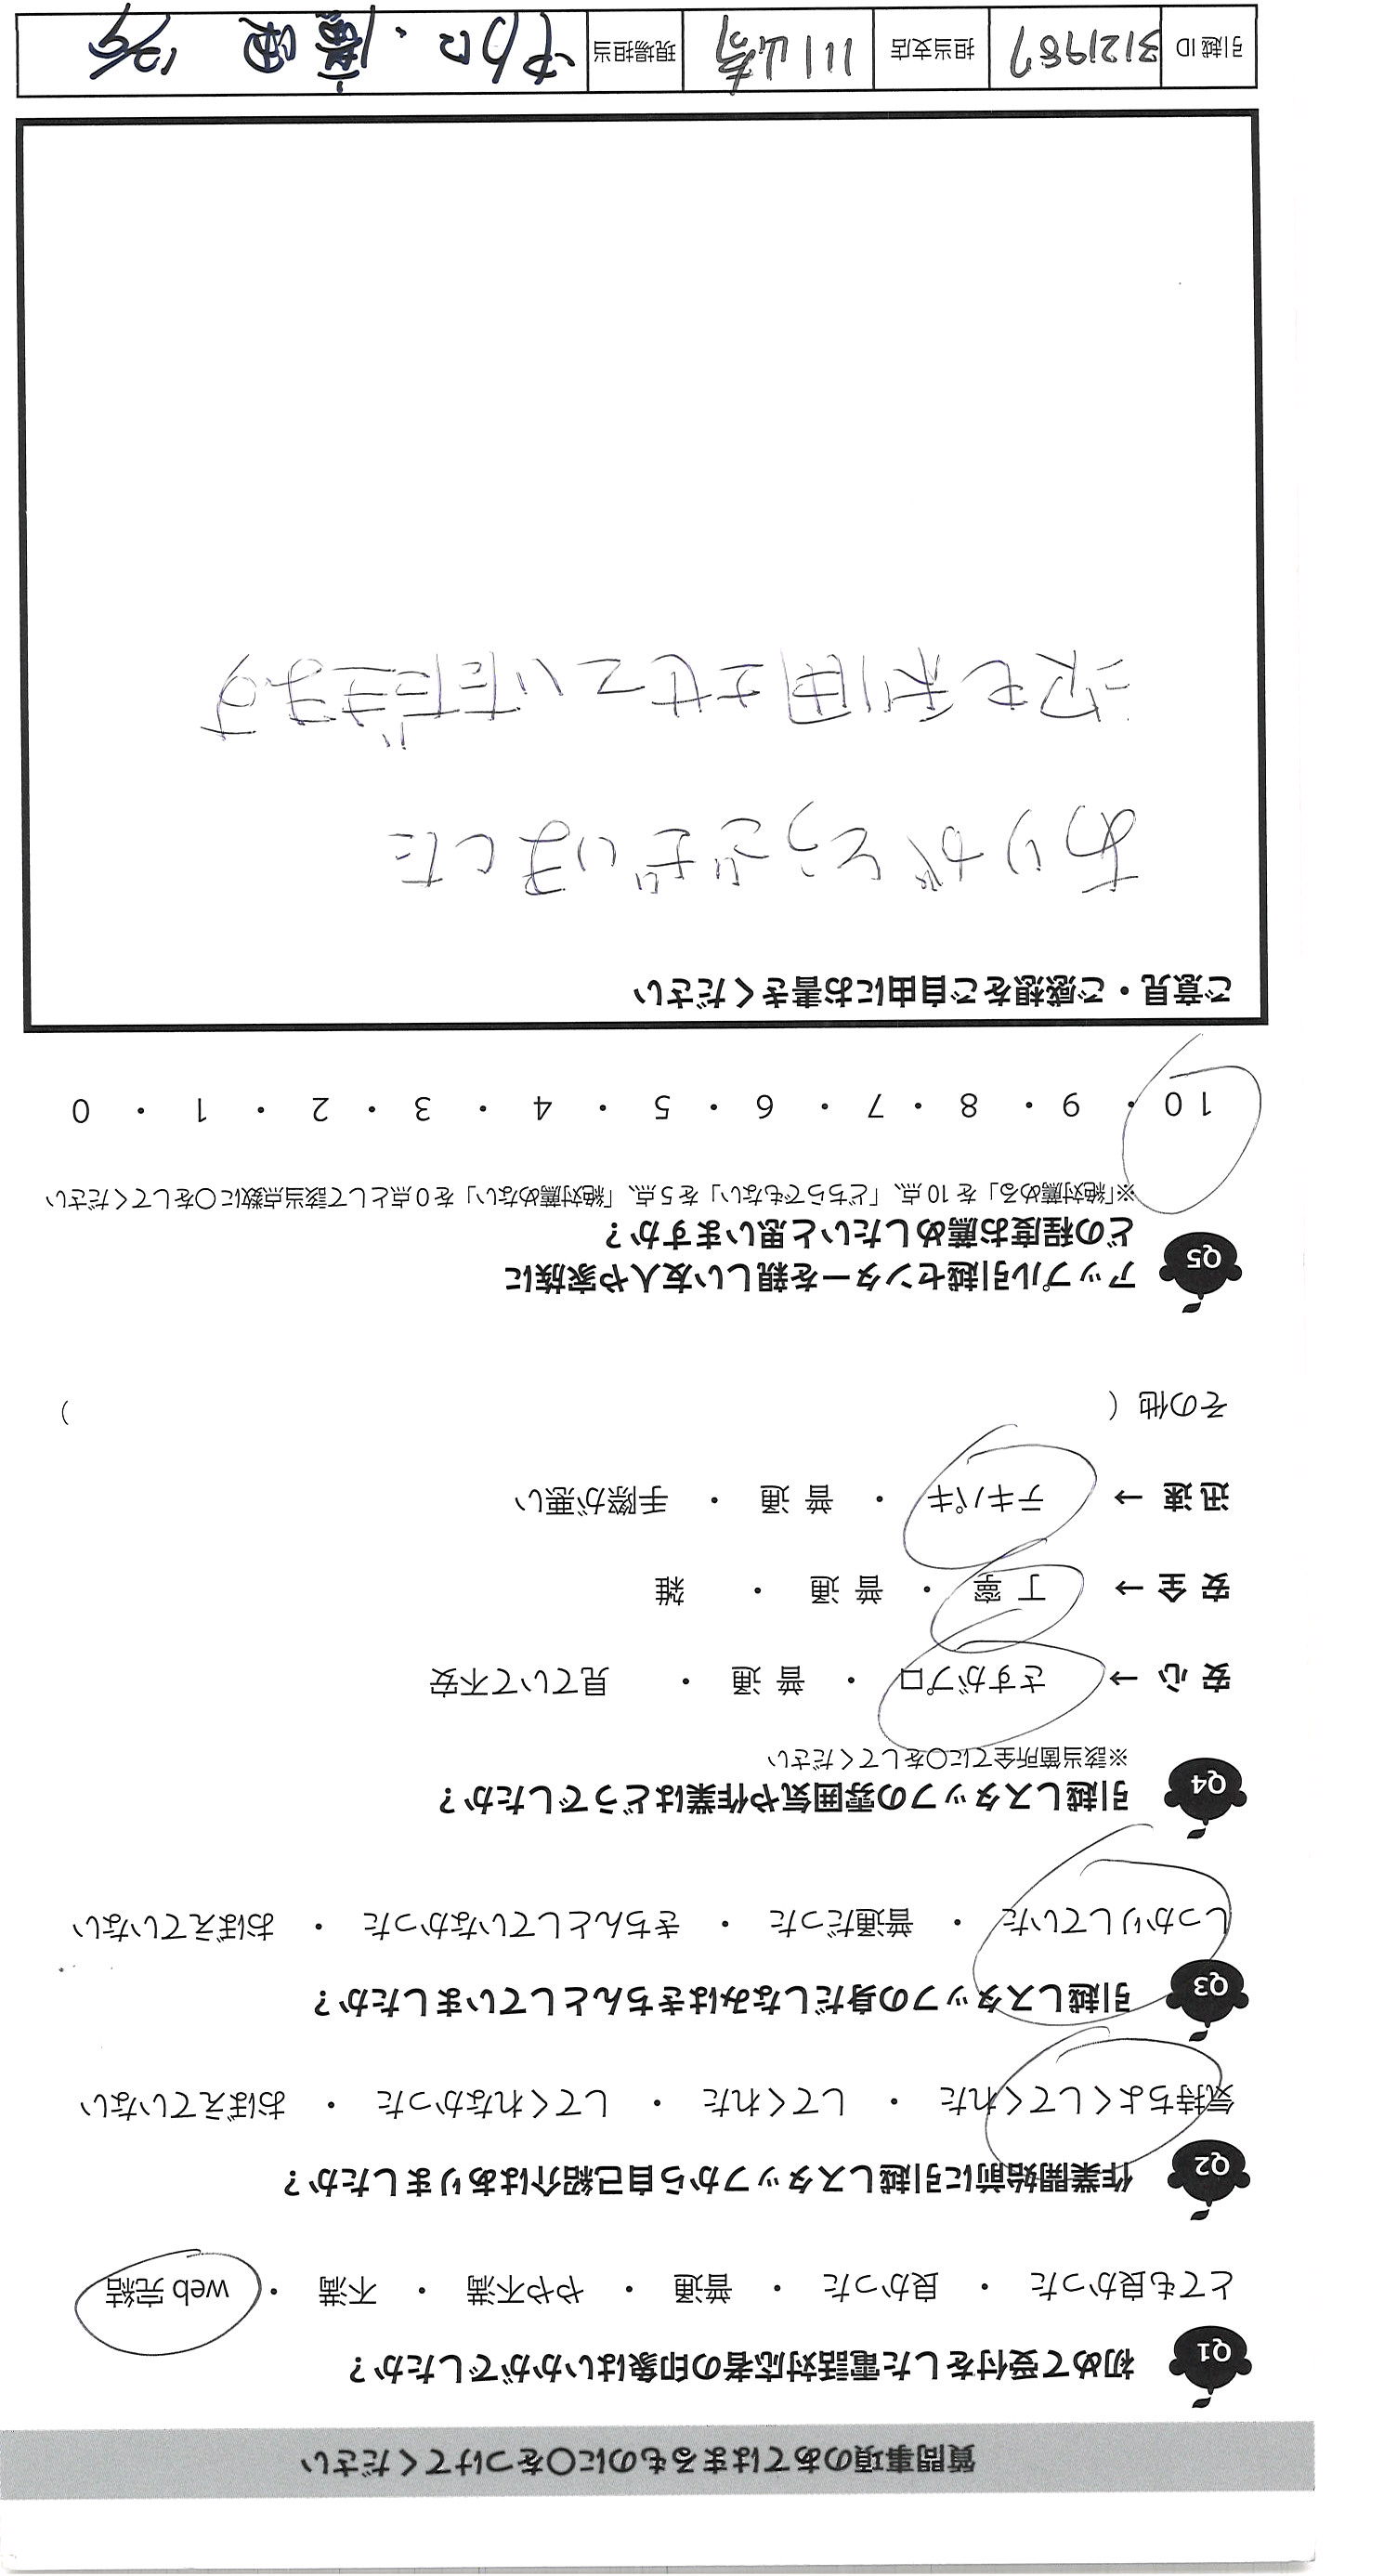 質問事項のあてはまるものに○をつけてください
Q1 初めて受付をした電話対応者の印象はいかがでしたか？
とても良かった ・ 良かった ・ 普通 ・ やや不満 ・ 不満 ・ web 完結
Q2 作業開始前に引越しスタッフから自己紹介はありましたか？
気持ちよくしてくれた ・ してくれた ・ してくれなかった ・ おぼえていない
Q3 引越しスタッフの身だしなみはきちんとしていましたか？
しっかりしていた ・ 普通だった ・ きちんとしていなかった ・ おぼえていない
Q4 引越しスタッフの雰囲気や作業はどうでしたか？
※該当箇所全てに○をしてください
安 心 → さすがプロ ・ 普 通 ・ 見ていて不安
安 全 → 丁 寧 ・ 普 通 ・ 雑
迅 速 → テキパキ ・ 普 通 ・ 手際が悪い
その他（ ）
Q5 アップル引越センターを親しい友人や家族に
どの程度お薦めしたいと思いますか？
※「絶対薦める」を 10 点、「どちらでもない」を 5 点、「絶対薦めない」を 0 点として該当点数に○をしてください
10 ・ 9 ・ 8 ・ 7 ・ 6 ・ 5 ・ 4 ・ 3 ・ 2 ・ 1 ・ 0
ご意見・ご感想をご自由にお書きください
ありがとうございました
次も利用させていただきます
引越 ID 3121987 担当支店 川崎 現場担当